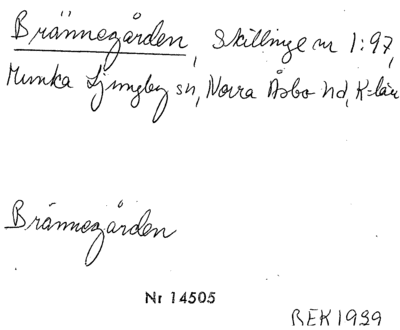 Brännegården, Skillinge nr 1:97,
Munka Ljungby sn, Norra Åsbo hd, K-län
Brännegården
Nr 14505
BEK 1939